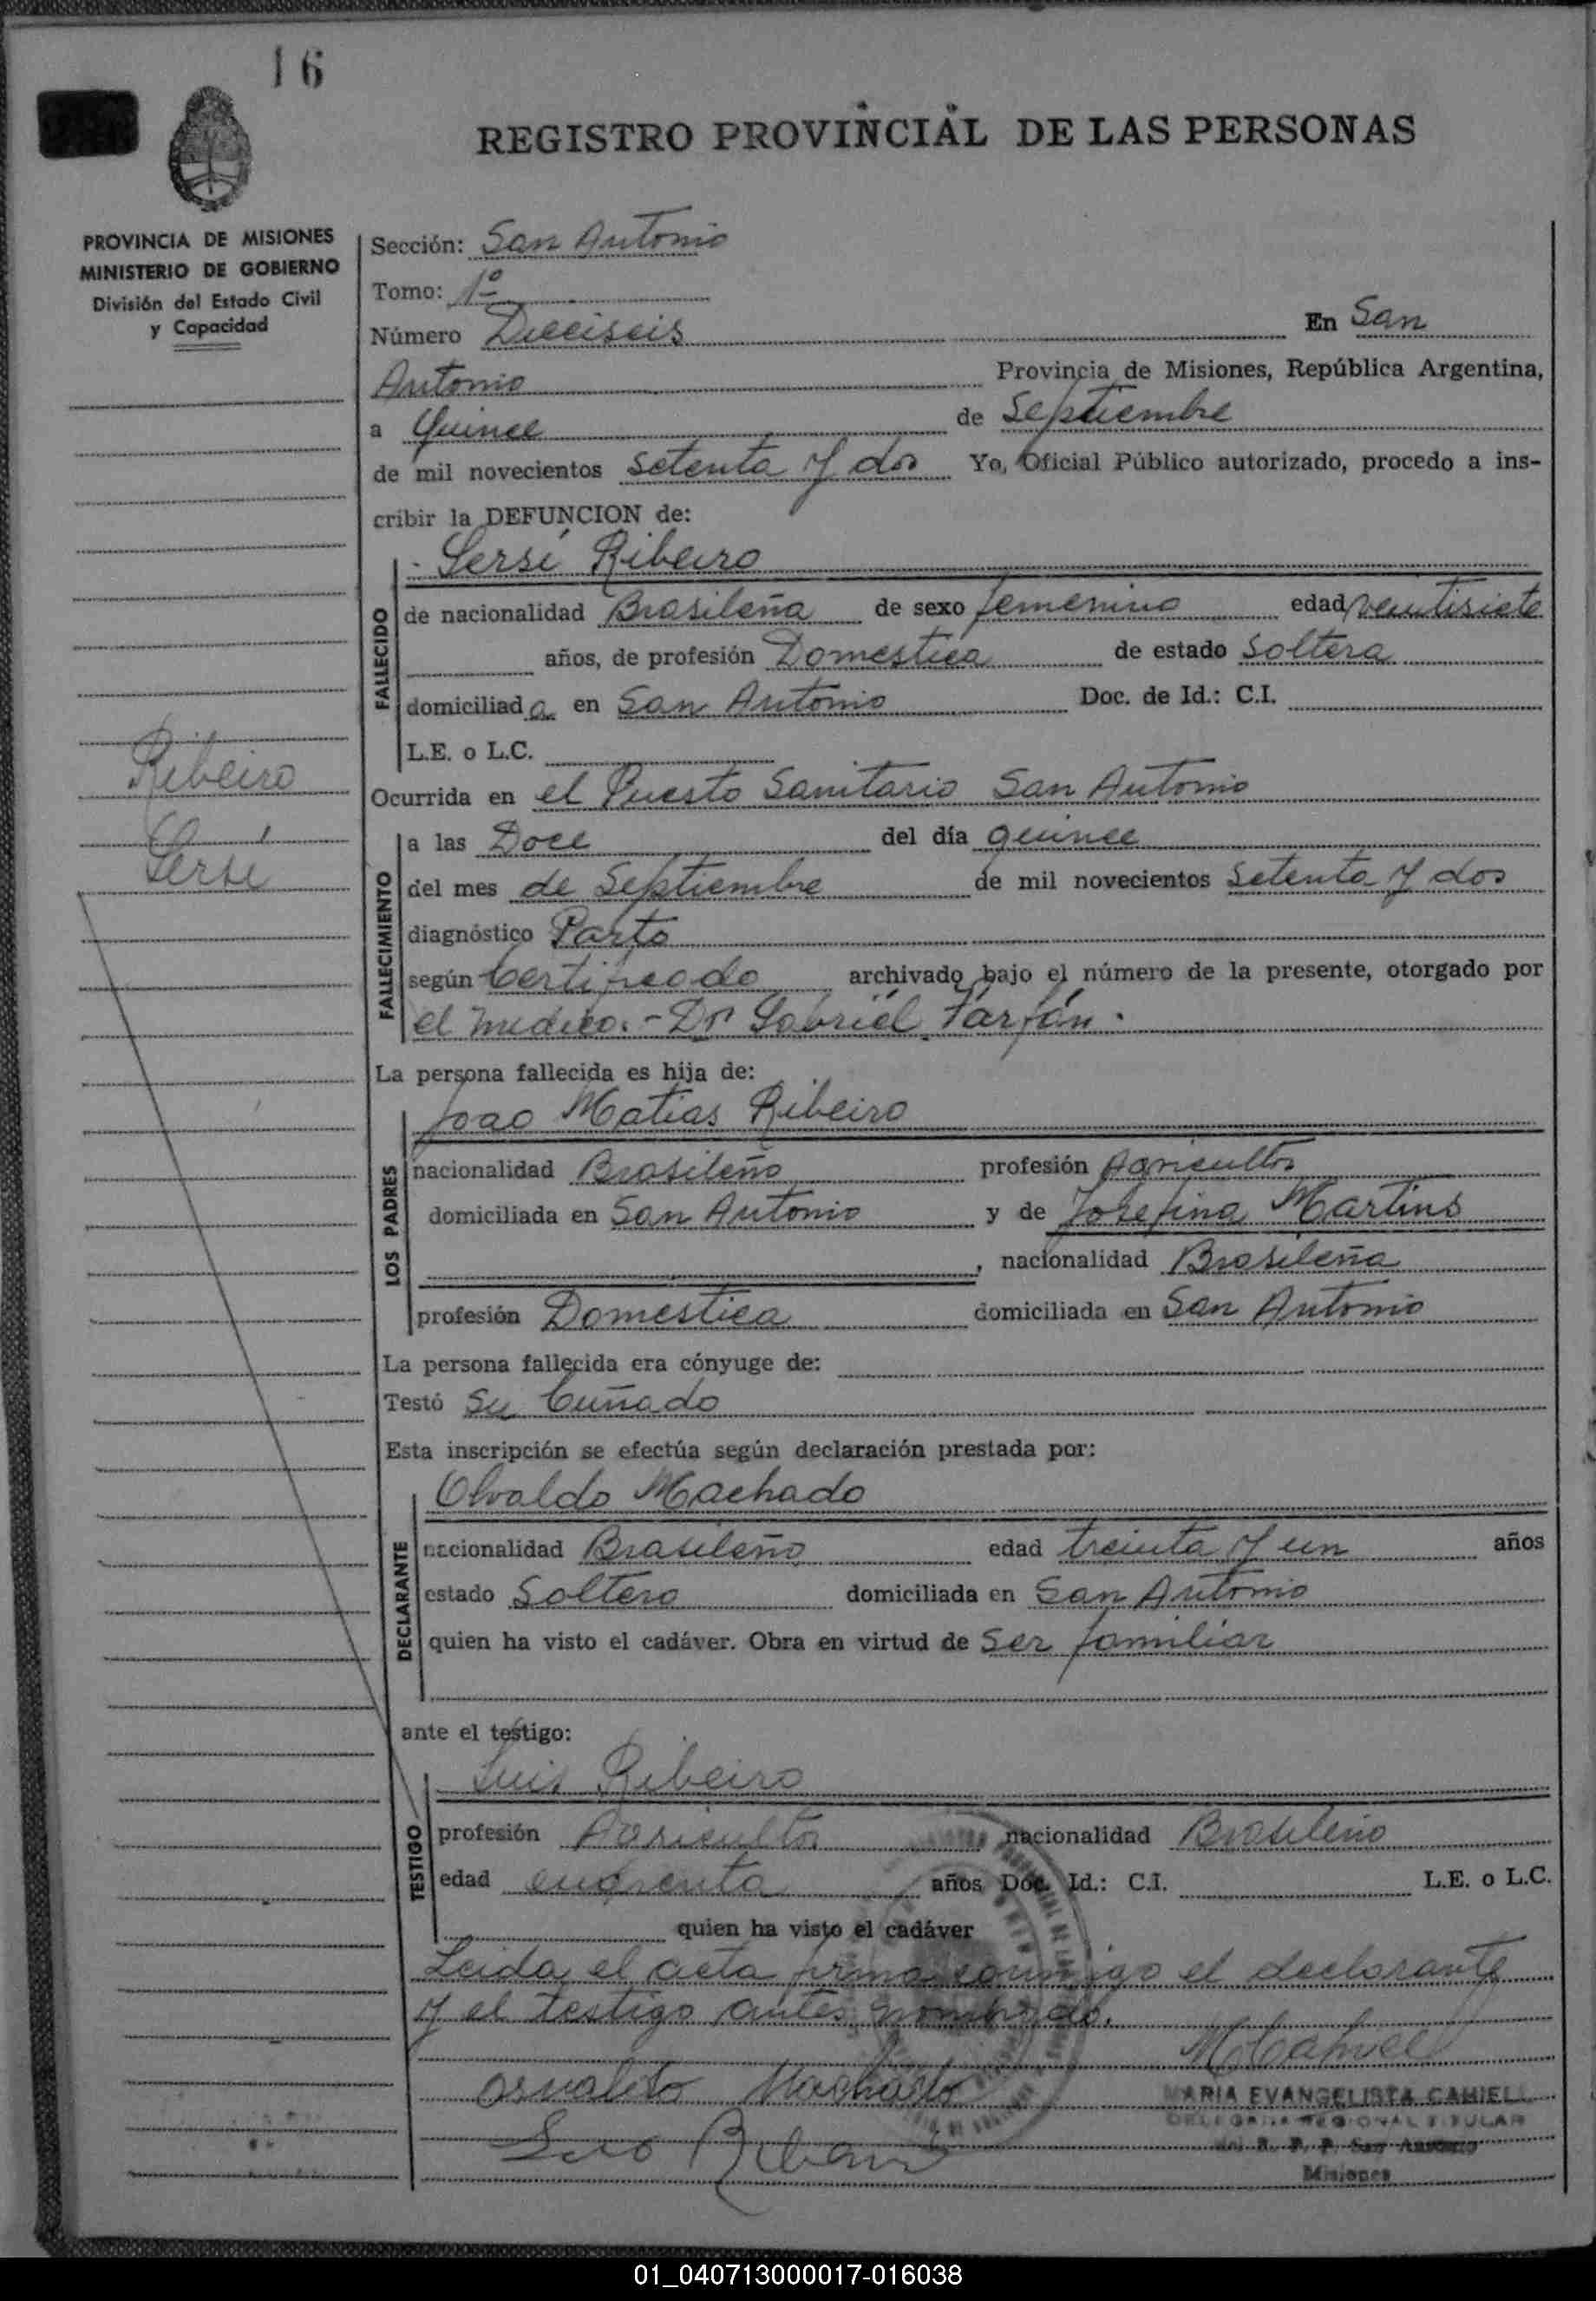 16
REGISTRO PROVINCIAL DE LAS PERSONAS
PROVINCIA DE MISIONES
MINISTERIO DE GOBIERNO
División del Estado Civil
y Capacidad
Sección: San Antonio
Tomo: 1º
Número Dieciseis En San
Antonio Provincia de Misiones, República Argentina,
a Quince de Septiembre
de mil novecientos setenta y dos Yo, Oficial Público autorizado, procedo a ins-
cribir la DEFUNCION de:
Sersé Ribeiro
FALLECIDO
de nacionalidad Brasileña de sexo femenino edad veintisiete
años, de profesión Domestica de estado Soltera
domiciliada en San Antonio Doc. de Id.: C.I.
L.E. o L.C.
Ribeiro
Sersé
Ocurrida en el Puesto Sanitario San Antonio
FALLECIMIENTO
a las Doce del día quince
del mes de Septiembre de mil novecientos Setenta y dos
diagnóstico Parto
según Certificado archivado bajo el número de la presente, otorgado por
el medico.- Dr Gabriel Farfán.
La persona fallecida es hija de:
Joao Matias Ribeiro
LOS PADRES
nacionalidad Brasileño profesión Agricultor
domiciliada en San Antonio y de Josefina Martins
, nacionalidad Brasileña
profesión Domestica domiciliada en San Antonio
La persona fallecida era cónyuge de:
Testó Su Cuñado
Esta inscripción se efectúa según declaración prestada por:
Osvaldo Machado
DECLARANTE
nacionalidad Brasileño edad treinta y un años
estado Soltero domiciliada en San Antonio
quien ha visto el cadáver. Obra en virtud de Ser familiar
ante el testigo:
Luis Ribeiro
TESTIGO
profesión Agricultor nacionalidad Brasileño
edad cuarenta años Doc. Id.: C.I. L.E. o L.C.
quien ha visto el cadáver
Leida el acta firma conmigo el declarante
y el testigo antes nombrado.
MCahiell
osvaldo Machado
MARIA EVANGELISTA CAHIELL
DELEGADA REGIONAL TITULAR
del R. P. P. San Antonio
Misiones
01_040713000017-016038